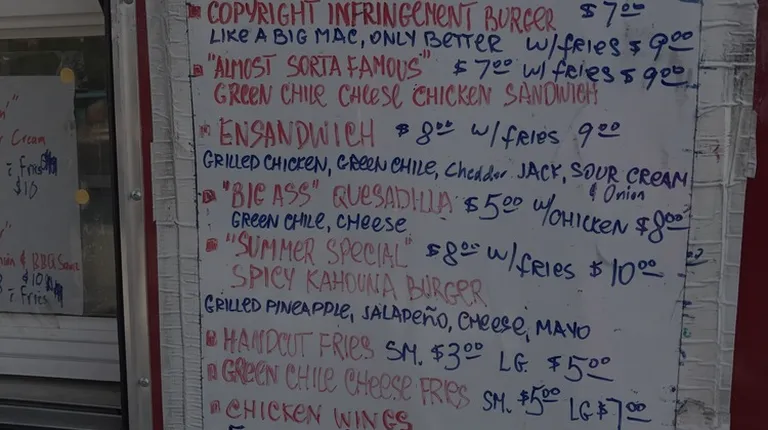 COPYRIGHT INFRINGEMENT BURGER $7.00
LIKE A BIG MAC, ONLY BETTER w/fries $9.00
"ALMOST SORTA FAMOUS" $7.00 w/fries $9.00
GREEN CHILE CHEESE CHICKEN SANDWICH
ENSANDWICH $8.00 w/fries 9.00
GRILLED CHICKEN, GREEN CHILE, Cheddar JACK, SOUR CREAM
& Onion
"BIG ASS" QUESADILLA $5.00 w/CHICKEN $8.00
GREEN CHILE, CHEESE
"SUMMER SPECIAL" $8.00 w/fries $10.00
SPICY KAHOUNA BURGER
GRILLED PINEAPPLE, JALAPEÑO, CHEESE, MAYO
HANDCUT FRIES SM. $3.00 LG. $5.00
GREEN CHILE CHEESE FRIES SM. $5.00 LG $7.00
CHICKEN WINGS
Cream
Fries
$10
& BBQ Sauce
$10
Fries